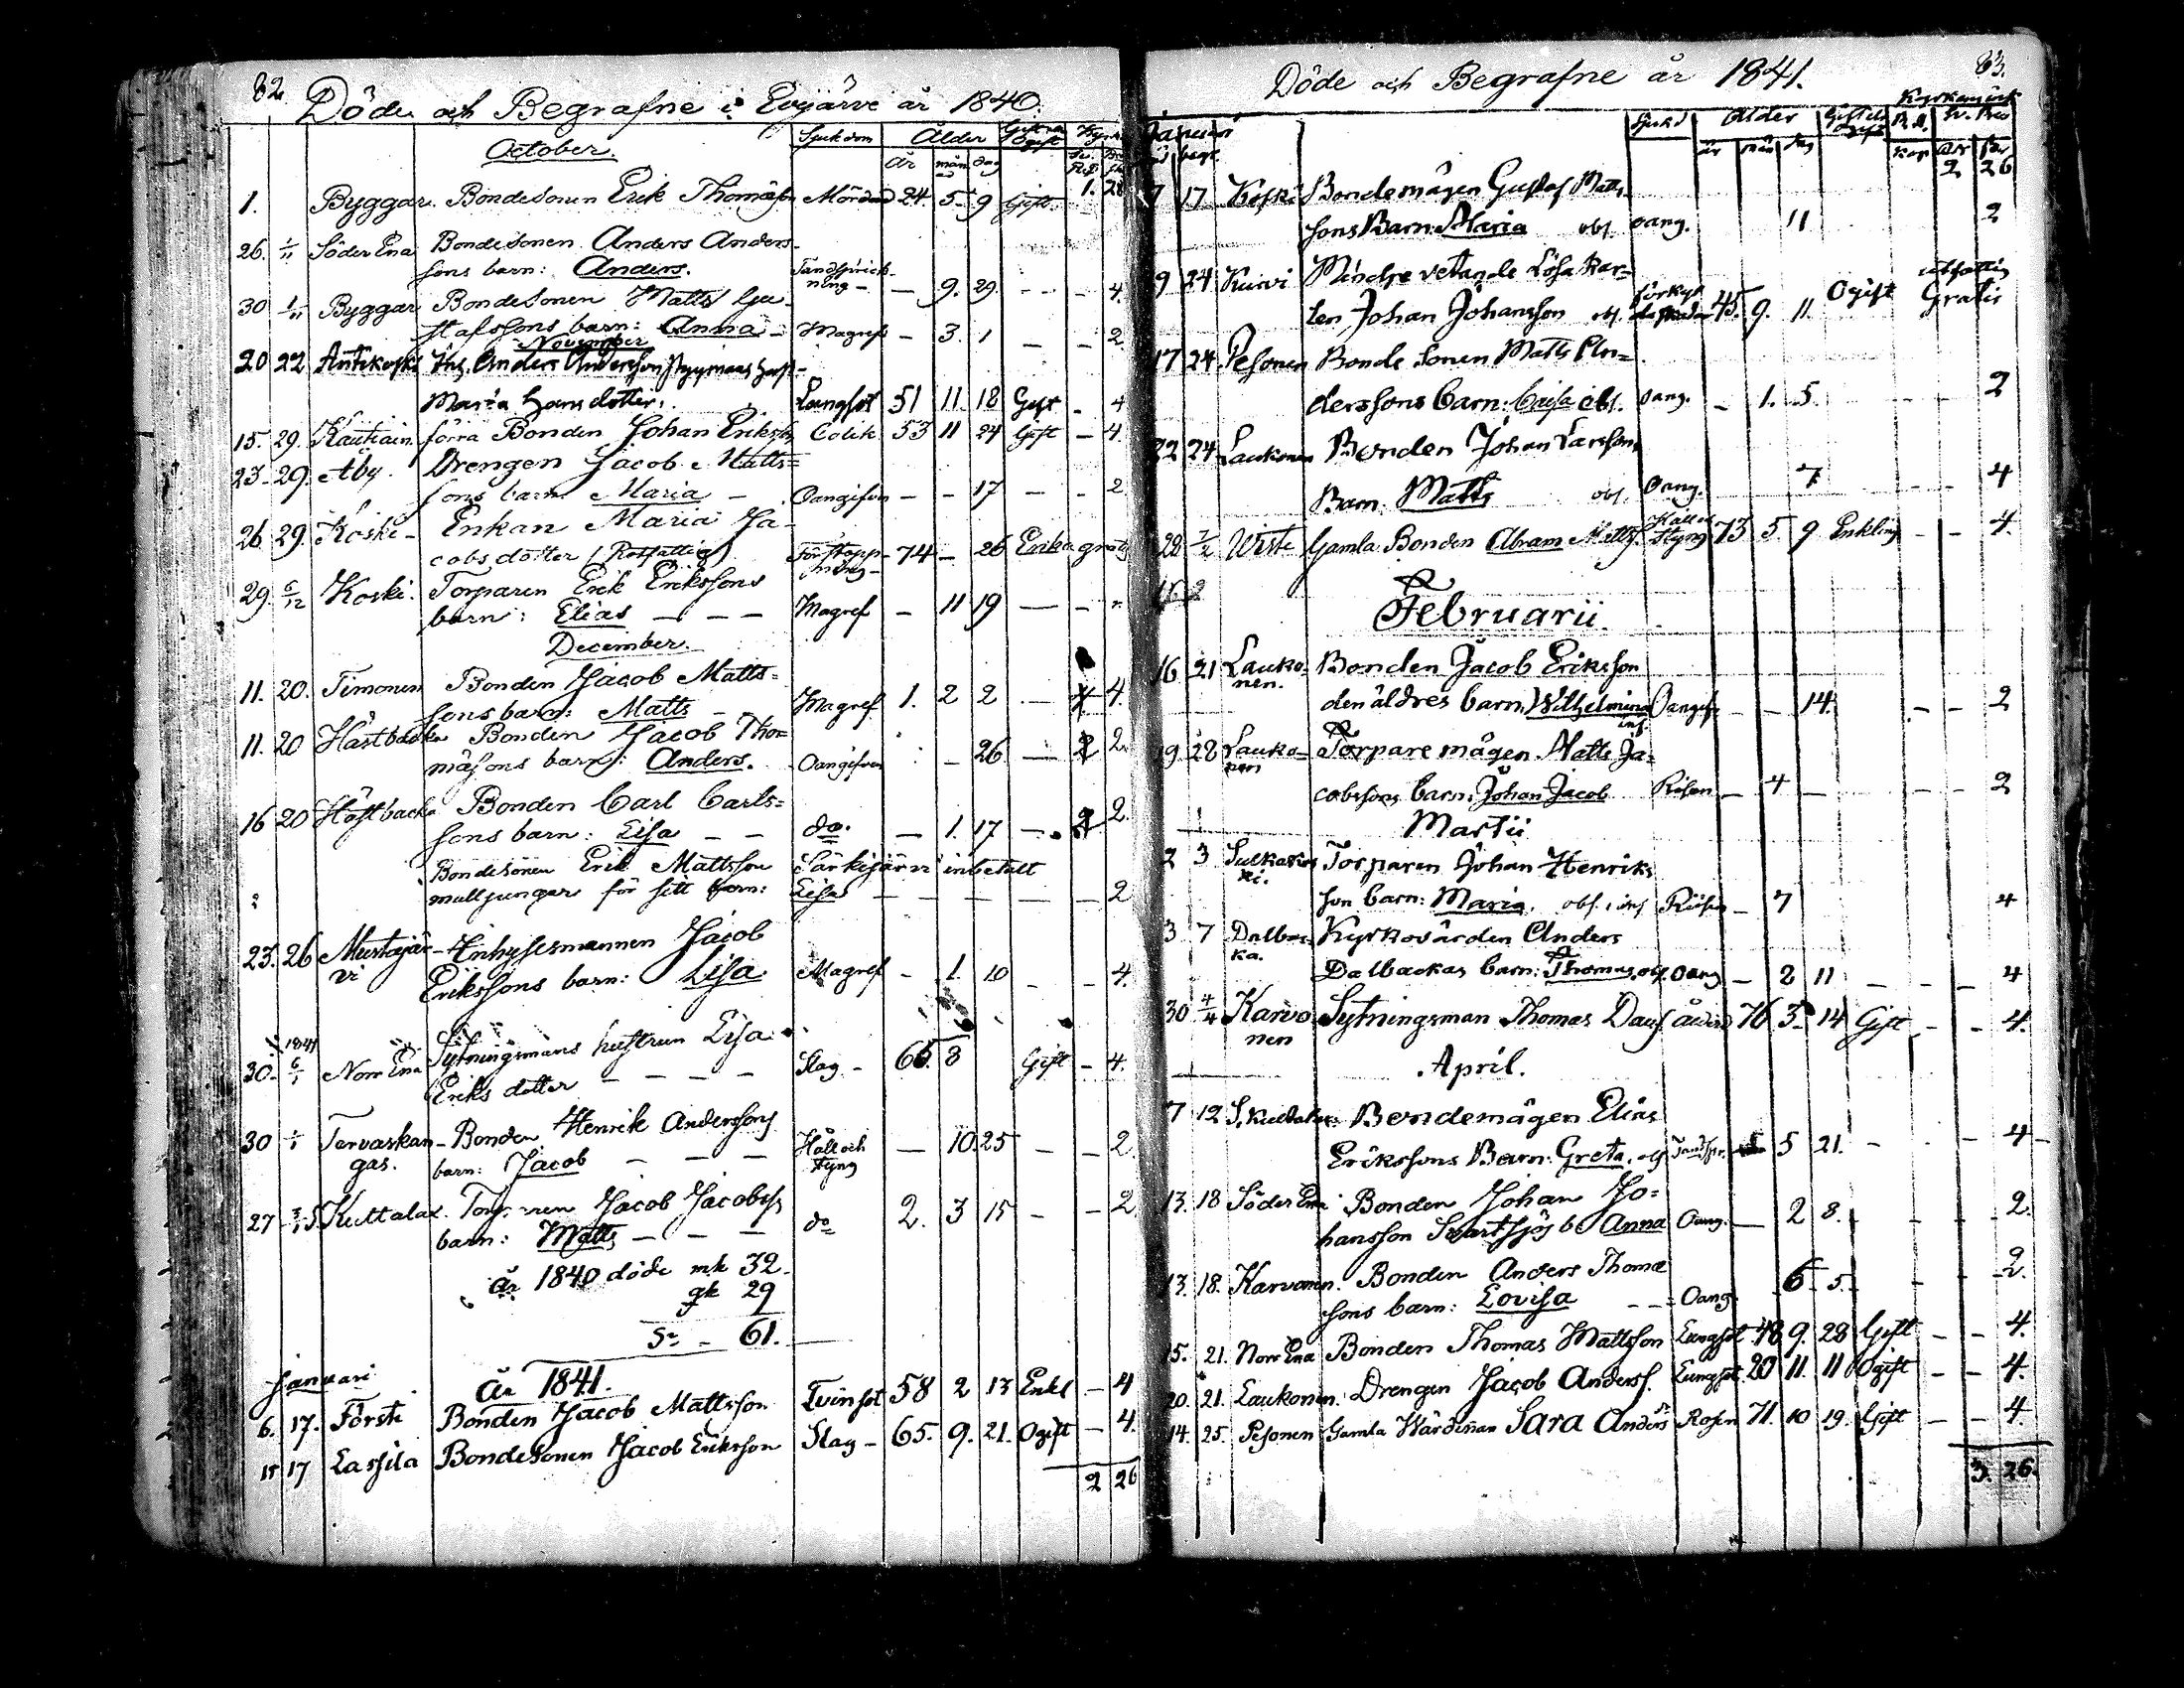 82
Döde och Begrafne i Evijärvi år 1840.
Sjukdom Ålder
October. År mån dag
1. Byggar. Bondesonen Erik Thomasson Mördad 24 5 9 Gift 1. 28
26. 1/11 Söder Ena Bondesonen Anders Anders-
sons barn: Anders. Tandsprick-
ning - — 9. 29. - - - 4.
30 1/11 Byggar Bondesonen Matts Gu-
stafssons barn: Anna - Magref - 3. 1 — - 2
November
20 22 Antikoski Inh. Anders Andersson
Maria Hansdotter. Lungsot 51 11. 18 Gift - 4
15. 29. Kautiain. förra Bonden Johan Erikss. Colik 53 11 24 Gift - 4.
23- 29. Åby. Drengen Jacob Matts=
sons barn Maria — Oangifven - - 17 - - 2
26 29. Koski - Enkan Maria Ja-
cobsdotter (Rotfattig) Förstopp-
ning - 74 - 26 Enka gratis
29. 6/12 Koski. Torparen Erik Erikssons
barn: Elias — — — Magref - 11 19 — -
December.
11. 20. Timonen Bonden Jacob Matts=
sons barn: Matts — Magref 1. 2 2 — 4.
11. 20 Hästbacka Bonden Jacob Tho=
mäsons barn: Anders. Oangifven - 26 — 2.
16 20 Hästbacka Bonden Carl Carls=
sons barn: Lisa — — do. — 1. 17 — 2.
Bondesonen Erik Mattsson Särkijärvi inbetalt
mullpungar för sitt barn: Lisas — — — — — 2
23. 26 Mustajär- Inhysesmannen Jacob
vi Erikssons barn: Lisa Magref - 1. 10 - - 4.
1841
30. 6/1 Norr Ena Sytningsmans hustrun Lisa
Eriks dotter — — — — Slag - 65. 8 Gift - 4.
30 1/1 Tervaskan- Bonden Henrik Anderssons
gas. barn: Jacob — — — Håll och
styng — 10. 25 - - 2
27 3/1 Kuttalax. Torparen Jacob Jacobss
barn: Matts — — — do 2. 3 15 - - 2
år 1840 döde mk 32
qk 29
Sa - 61.
Januari År 1841.
6. 17. Förste Bonden Jacob Mattsson Tvinsot 58 2 13 Enkl - 4
15 17 Lassila Bondesonen Jacob Eriksson Slag - 65. 9. 21. Ogift - 4.
2 26
Döde och Begrafne år 1841. 83.
Januari Sjukd Ålder
år mån dag
2 26
9 17 Koski Bondemågen Gustaf Matts-
sons Barn: Maria obs. oang. 11 2
9 24 Kurvi Mindre vetande Lösa Kar=
len Johan Johansson obs. 45. 9. 11. Ogift utfattig Gratis
17 24. Pesonen Bonde sonen Matts An=
derssons barn: Caisa obs. oang. - 1. 5. 2
22 24 Laukonen Bonden Johan Larssons
Barn: Matts obs. Oang. 7 - - 4
28 7/2 Wiste Gamla Bonden Abram Matts. Håll o
Styng 73 5 9 Enkling - - 4.
Februarii.
16 21 Lauko- Bonden Jacob Eriksson
nen. den äldres barn: Wilhelmina Oangif. — — 14. - - 2
19 28 Lauko= Torpare mågen Matts Ja=
nen cobssons barn: Johan Jacob Rosen — 4 — - - 2
Martii
2 3 Sulkakos Torparen Johan Henriks
ki. son barn: Maria. obs. — 7 4
3 7 Dalbac- Kyrkovärden Anders
ka. Dalbackas barn: Thomas. obs. Oang — 2 11 — — — 4
30 4/4 Karvo Sytningsman Thomas 76 3 14 Gift - - 4.
nen
April.
7 12 Bondemågen Elias
Erikssons Barn: Greta. 5 21. - - 4
13. 18 Söder Ena Bonden Johan Jo=
hansson Svartsjös b. Anna Oang. — 2 8. - - 2.
13. 18. Karvonen. Bonden Anders Thomæ
sons barn: Lovisa - - Oang. 6 5. - - 2.
15. 21. Norr Ena Bonden Thomas Mattsson Lungsot 48 9. 28 Gift - - 4.
20. 21. Laukonen. Drengen Jacob Anderss. Lungsot 20 11. 11 Ogift - - 4.
14. 25. Pesonen Gamla Wärdinnan Sara Anders Rosen 71. 10 19. Gift - - 4.
3. 26.